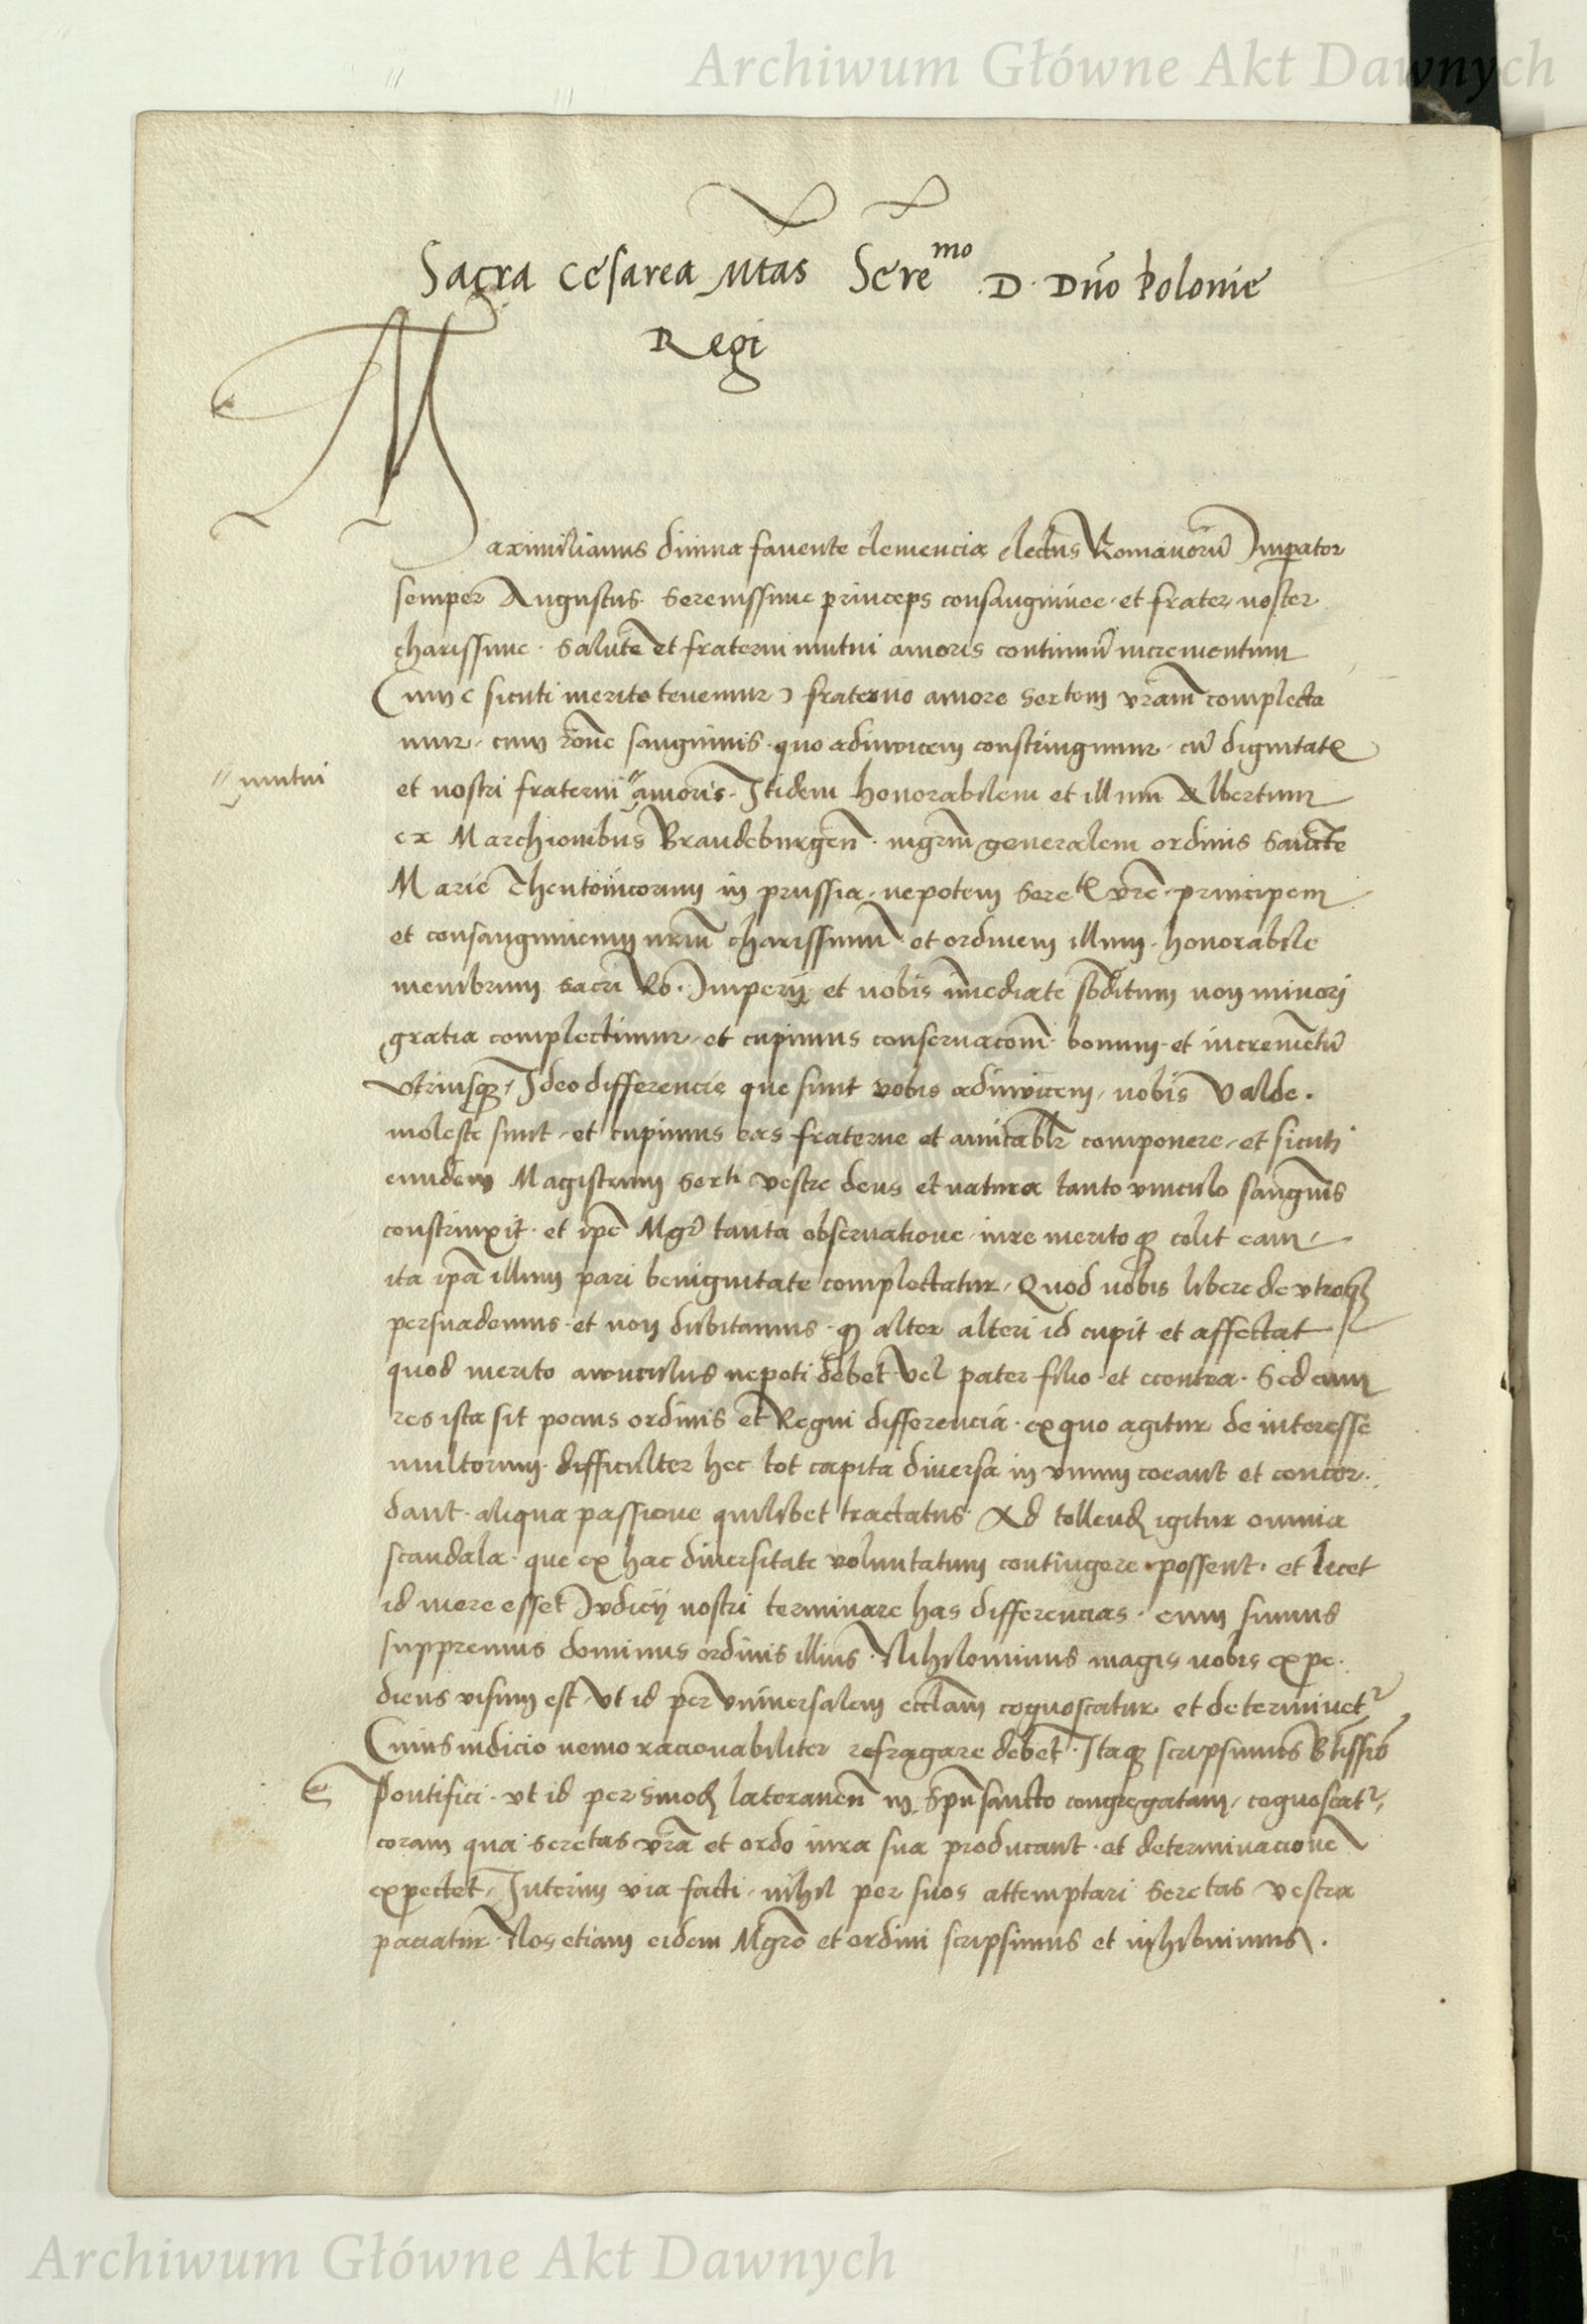 Archiwum Główne Akt Dawnych
Sacra Cesarea Mtas Sere^mo D. Dno Polonie
Regi
Maximilianus diuina fauente clemencia electus Romanorū Imperator
semper Augustus. Serenissime princeps consanguinee et frater noster
charissime. Salutē et fraterni mutui amoris continuū incrementum
Cum (sicuti merito tenemur) fraterno amore Sertem vram complecta
mur, cum rone sanguinis quo adinuicem constringimur, cū dignitate
mutui
et nostri fraterni amoris. Itidem honorabilem et illum Albertum
ex Marchionibus Brandeburgen. mgrm generalem ordinis Sancte
Marie Theutonicorum in prussia, nepotem Seretis vre, principem
et consanguineum nrm charissimum et ordinem illum, honorabile
membrum sacri Ro. Imperij et nobis īmediate sbditum non minori
gratia complectimur, et cupimus conseruacom. bonum et incremētū
vtriusque, Ideo differencie que sunt vobis adinuicem, nobis valde.
moleste sunt, et cupimus eas fraterne et amicablr componere, et sicuti
eundem Magistrum Serti vestre deus et natura tanto vinculo sanguīs
constrinxit. et ipe Mgr tanta obseruatione iure meritoque colit eam,
ita ipa illum pari benignitate complectatur, Quod nobis libere de vtroque
persuademus et non dubitamus. quod alter alteri id cupit et affectat
quod merito auunculus nepoti debet vel pater filio et econtra. Sed cum
res ista sit pocius ordinis et Regni differencia. ex quo agitur de interesse
multorum. difficulter hec tot capita diuersa in vnum coeant et concor.
dant. aliqua passione quilibet tractatus. Ad tollend igitur omnia
scandala. que ex hac diuersitate voluntatum contingere possent. et licet
id mere esset Iudicij nostri terminare has differencias. cum simus
suppremus dominus ordinis illius. Nihilominus magis nobis expe.
diens visum est, vt id per vniuersalem ecclam cognoscatur et determinet^r
Cuius iudicio nemo racionabiliter refragare debet. Itaque scripsimus Btissio
Pontifici. vt id per sinod lateranen in Spu sancto congregatam, cognoscat^r,
coram qua seretas vra et ordo iura sua producant. et determinacione
expectet, Interim via facti, nihil per suos attemptari Seretas vestra
paciatur. Nos etiam eidem Mgro et ordini scripsimus et inhibuimus.
Archiwum Główne Akt Dawnych